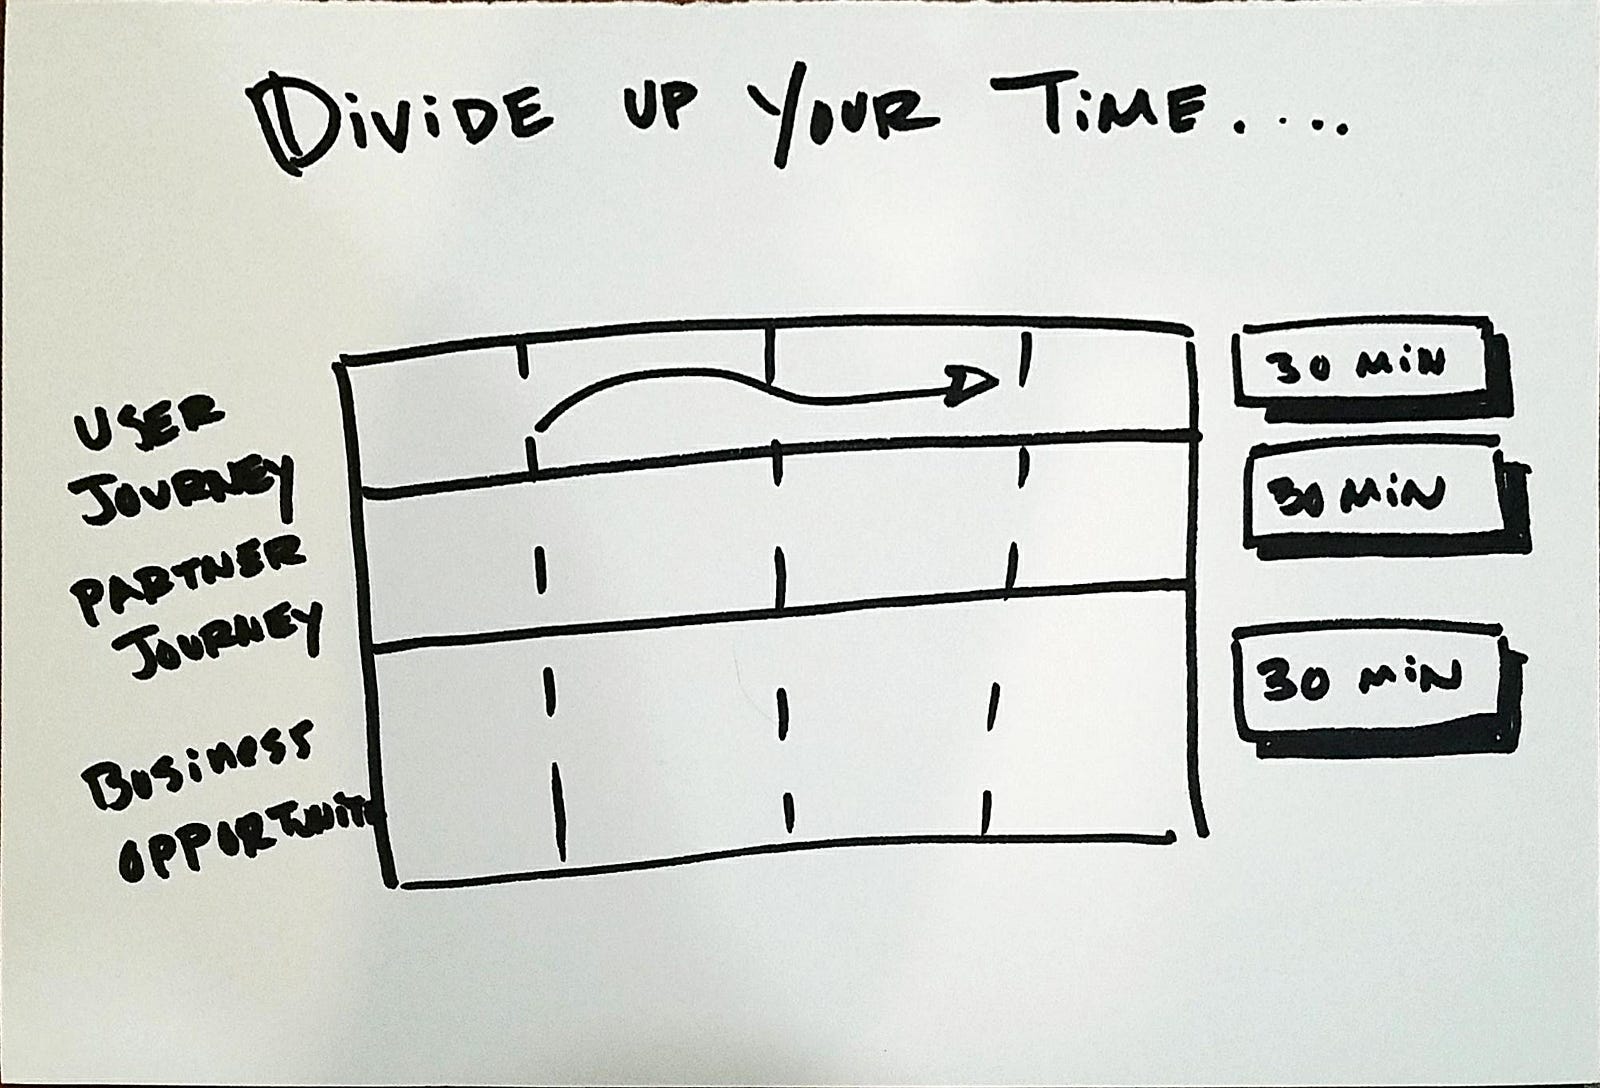 DIVIDE UP YOUR TIME....
USER
JOURNEY
30 MIN
PARTNER
JOURNEY
30 MIN
BUSINESS
OPPORTUNITY
30 MIN